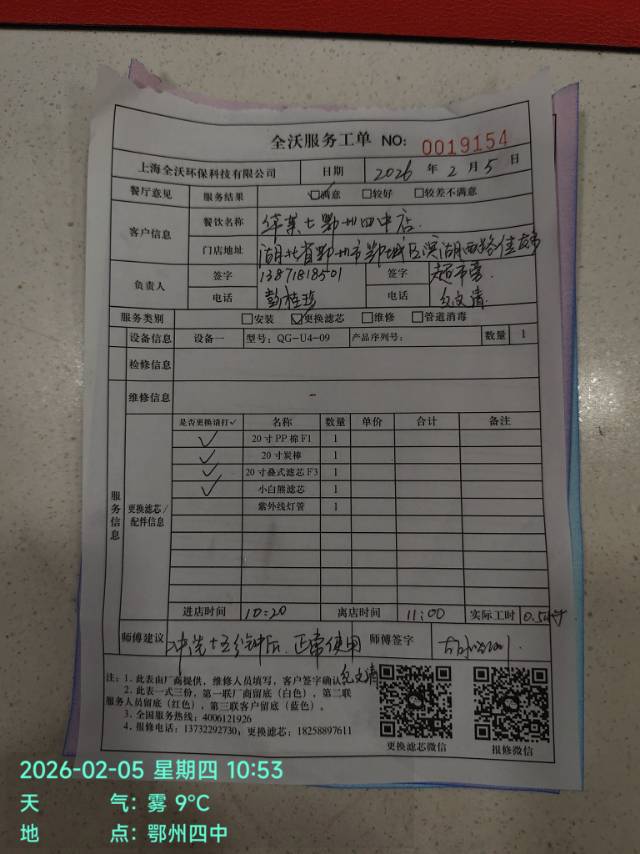 全沃服务工单 NO: 0019154
上海全沃环保科技有限公司 日期 2026 年 2 月 5 日
餐厅意见 服务结果 ☑满意 □较好 □较差不满意
客户信息 餐饮名称 华莱士鄂州四中店
门店地址 湖北省鄂州市鄂城区滨湖西路佳
负责人 签字 13871818501 签字
电话 彭桂 电话
服务类别 □安装 ☑更换滤芯 □维修 □管道消毒
设备信息 设备一 型号: QG-U4-09 产品序列号: 数量 1
检修信息
维修信息 -
服务信息 更换滤芯/配件信息 是否更换请打✓ 名称 数量 单价 合计 备注
✓ 20寸PP棉F1 1
✓ 20寸炭棒 1
✓ 20寸叠式滤芯F3 1
✓ 小白熊滤芯 1
紫外线灯管 1
进店时间 10:20 离店时间 11:00 实际工时 0.5
师傅建议 冲洗十五分钟后,正常使用 师傅签字
注: 1. 此表由厂商提供,维修人员填写,客户签字确认
2. 此表一式三份,第一联厂商留底(白色),第二联
服务人员留底(红色),第三联客户留底(蓝色)。
3. 全国服务热线: 4006121926
4. 报修电话: 13732292730,更换滤芯: 18258897611
更换滤芯微信 报修微信
2026-02-05 星期四 10:53
天 气: 雾 9℃
地 点: 鄂州四中